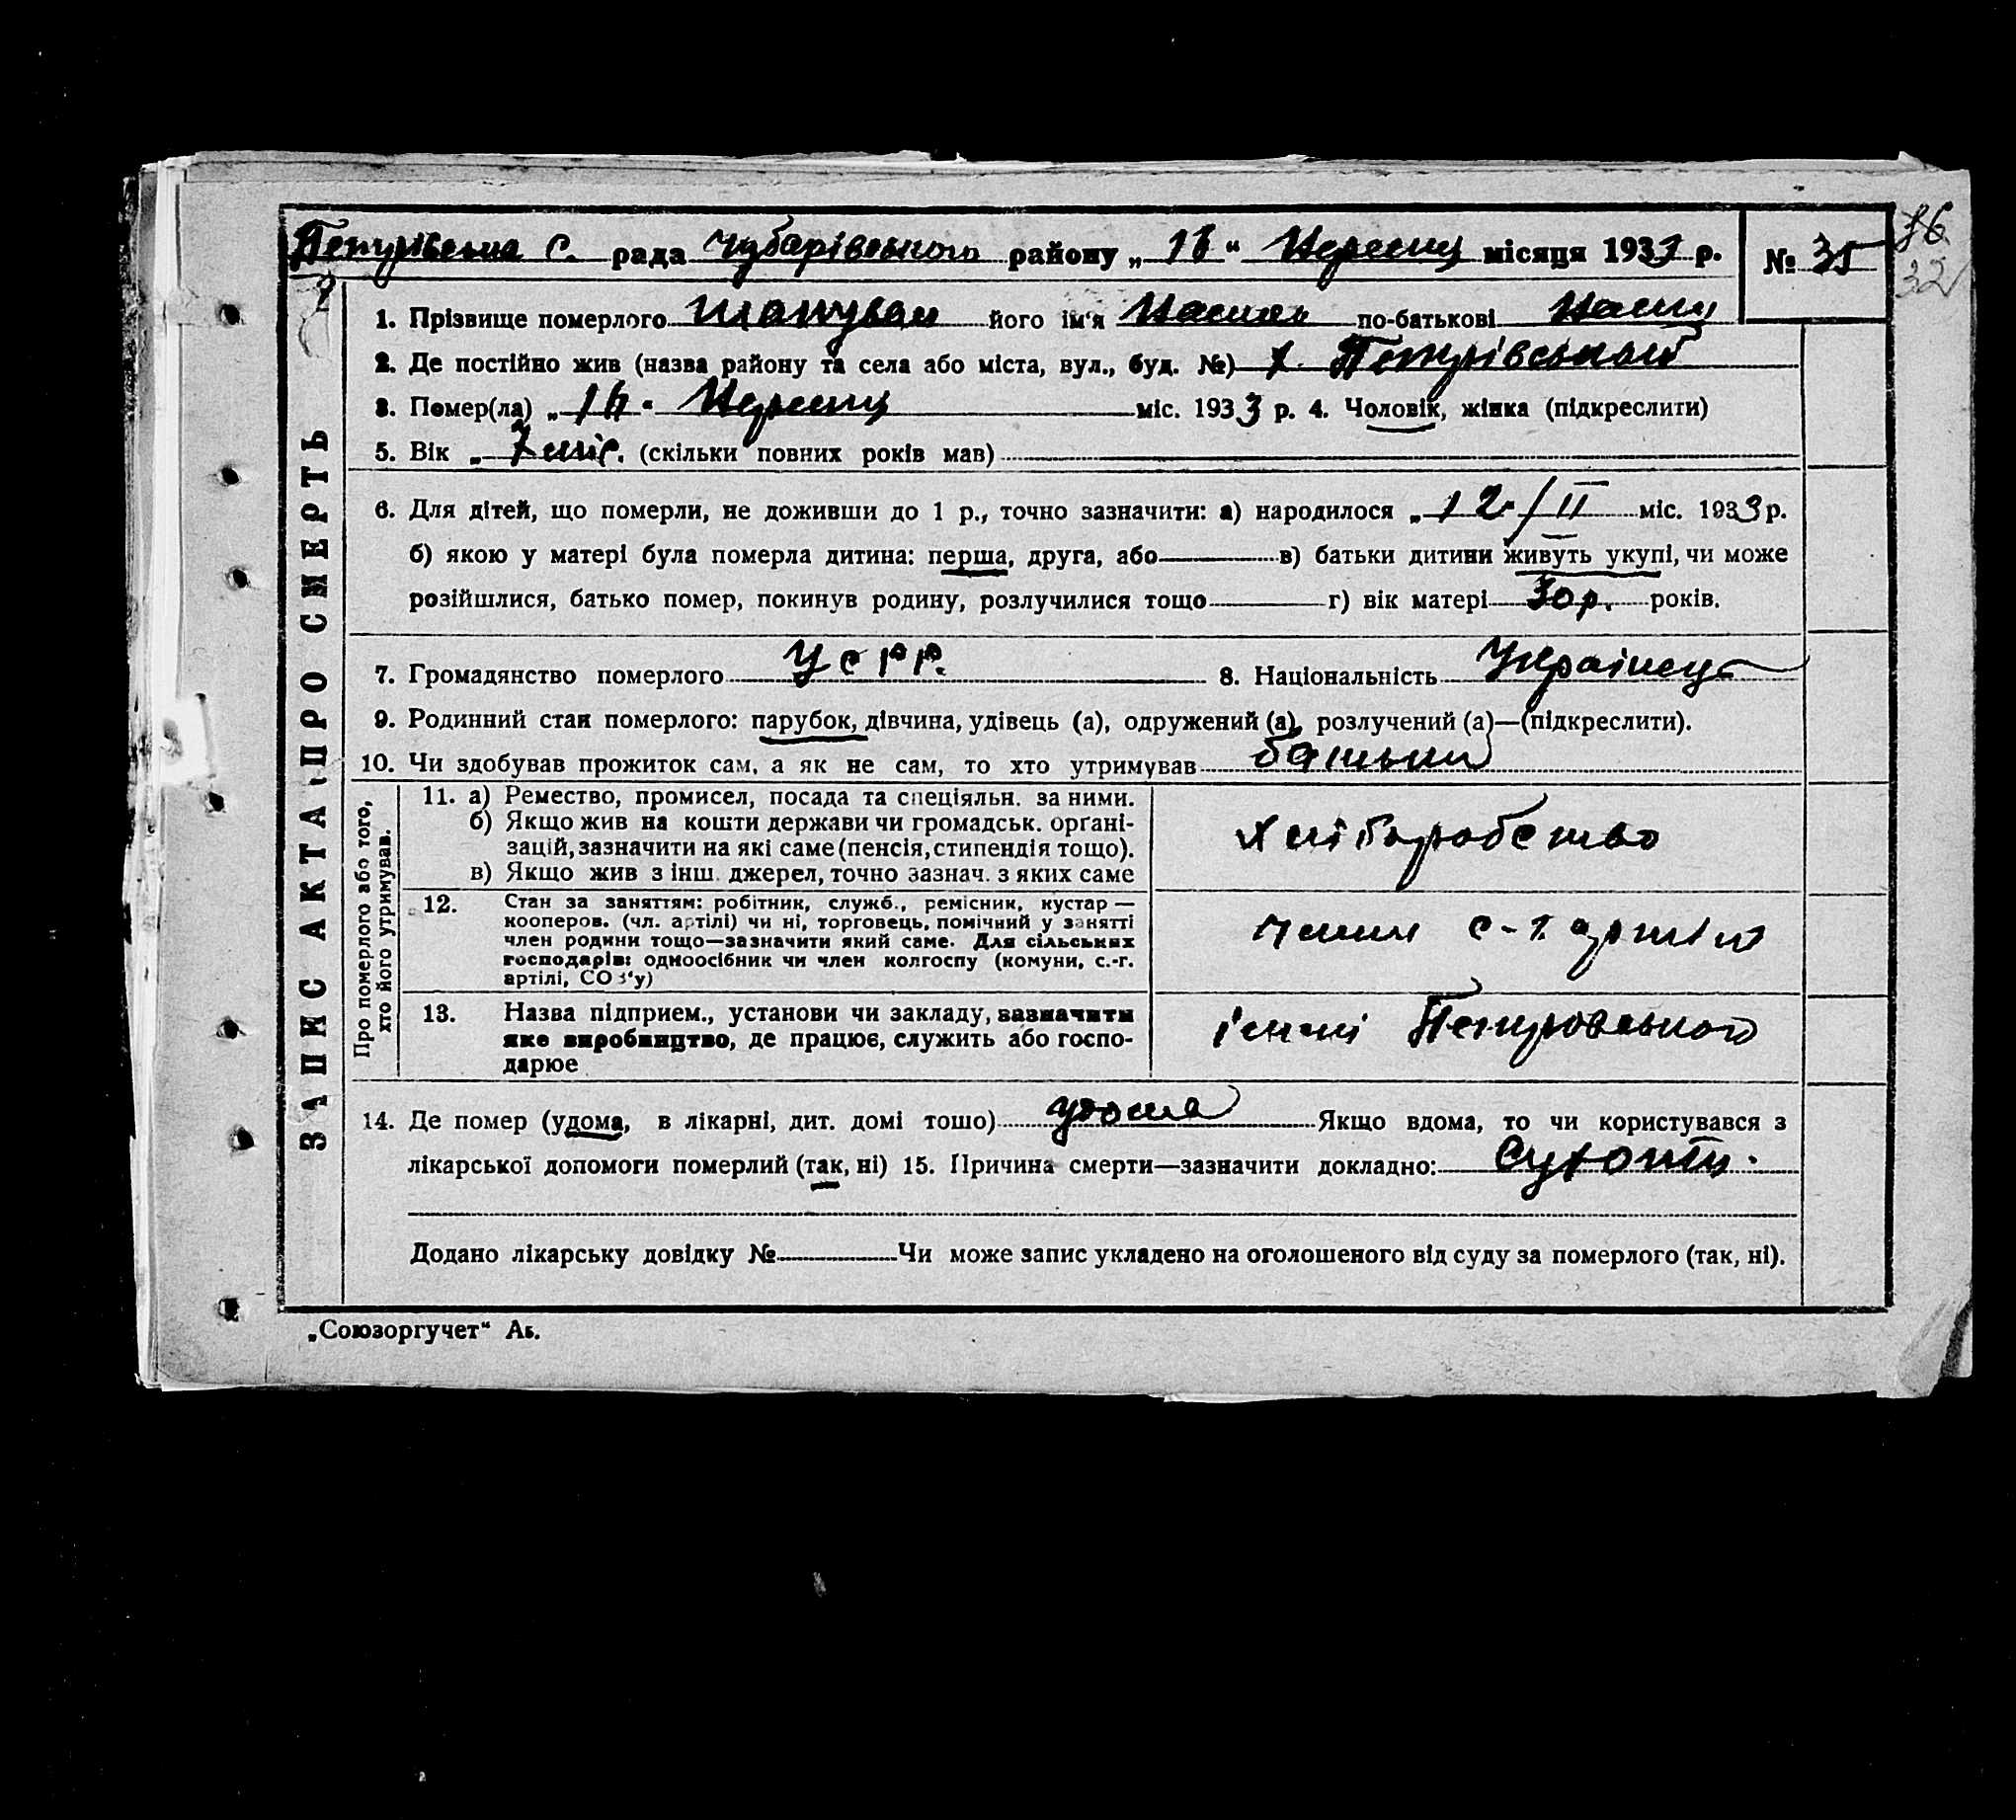 Петрівська С. рада Чубарівського району „16“ Вересня місяця 1933 р. № 35
86
32
ЗАПИС АКТА ПРО СМЕРТЬ
1. Прізвище померлого його ім'я по-батькові
2. Де постійно жив (назва району та села або міста, вул., буд. №) х. Петрівський
3. Помер(ла) „16“ Вересня міс. 1933 р. 4. Чоловік, жінка (підкреслити)
5. Вік „ 7 міс. (скільки повних років мав)
6. Для дітей, що померли, не доживши до 1 р., точно зазначити: а) народилося „12“/II міс. 1933 р.
б) якою у матері була померла дитина: перша, друга, або в) батьки дитини живуть укупі, чи може
розійшлися, батько помер, покинув родину, розлучилися тощо г) вік матері 30 р. років.
7. Громадянство померлого УСРР. 8. Національність Українець
9. Родинний стан померлого: парубок, дівчина, удівець (а), одружений (а), розлучений (а)—(підкреслити).
10. Чи здобував прожиток сам, а як не сам, то хто утримував батьки
Про померлого або того,
хто його утримував.
11. а) Ремество, промисел, посада та спеціяльн. за ними.
б) Якщо жив на кошти держави чи громадськ. орґані-
зацій, зазначити на які саме (пенсія, стипендія тощо).
в) Якщо жив з інш. джерел, точно зазнач. з яких саме
Хліборобство
12. Стан за заняттям: робітник, служб., ремісник, кустар —
кооперов. (чл. артілі) чи ні, торговець, помічний у занятті
член родини тощо—зазначити який саме. Для сільських
господарів: одноосібник чи член колгоспу (комуни, с.-г.
артілі, СОЗ'у)
член с-г артілі
13. Назва підприєм., установи чи закладу, зазначити
яке виробництво, де працює, служить або госпо-
дарює
імені Петровського
14. Де помер (удома, в лікарні, дит. домі тошо) удома Якщо вдома, то чи користувався з
лікарської допомоги померлий (так, ні) 15. Причина смерти—зазначити докладно: Сухоти.
Додано лікарську довідку № Чи може запис укладено на оголошеного від суду за померлого (так, ні).
„Союзоргучет“ Аь.